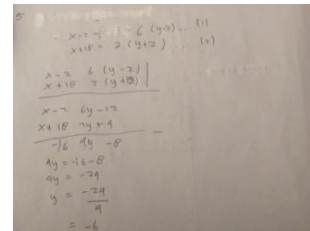 5
x-2 = 6 (y-2) ... (1)
x+18 = 2 (y+2) ... (2)
x-2 6 (y-2)
x+18 2 (y+2)
x-2 6y-12
x+18 2y+4
-16 4y -8
4y = -16-8
4y = -24
y = -24
4
= -6